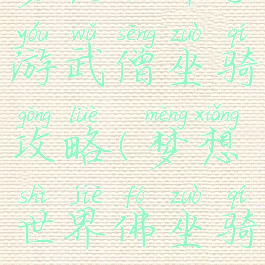 yóu wǔ sēng zuò qí
游武僧坐骑
gōng lüè mèng xiǎng
攻略(梦想
shì jiè fó zuò qí
世界佛坐骑